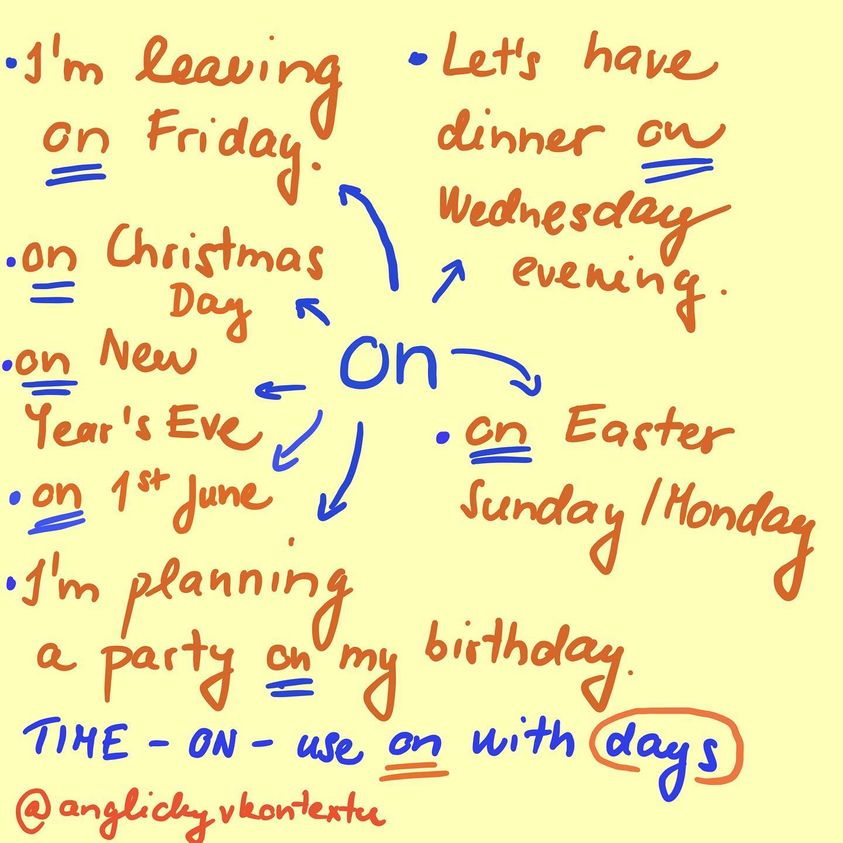 • I'm leaving
on Friday.
• on Christmas
Day
• on New
Year's Eve
• on 1st June
• I'm planning
a party on my birthday.
• Let's have
dinner on
Wednesday
evening.
on
• on Easter
Sunday / Monday
TIME - ON - use on with days
@anglickyvkontextu